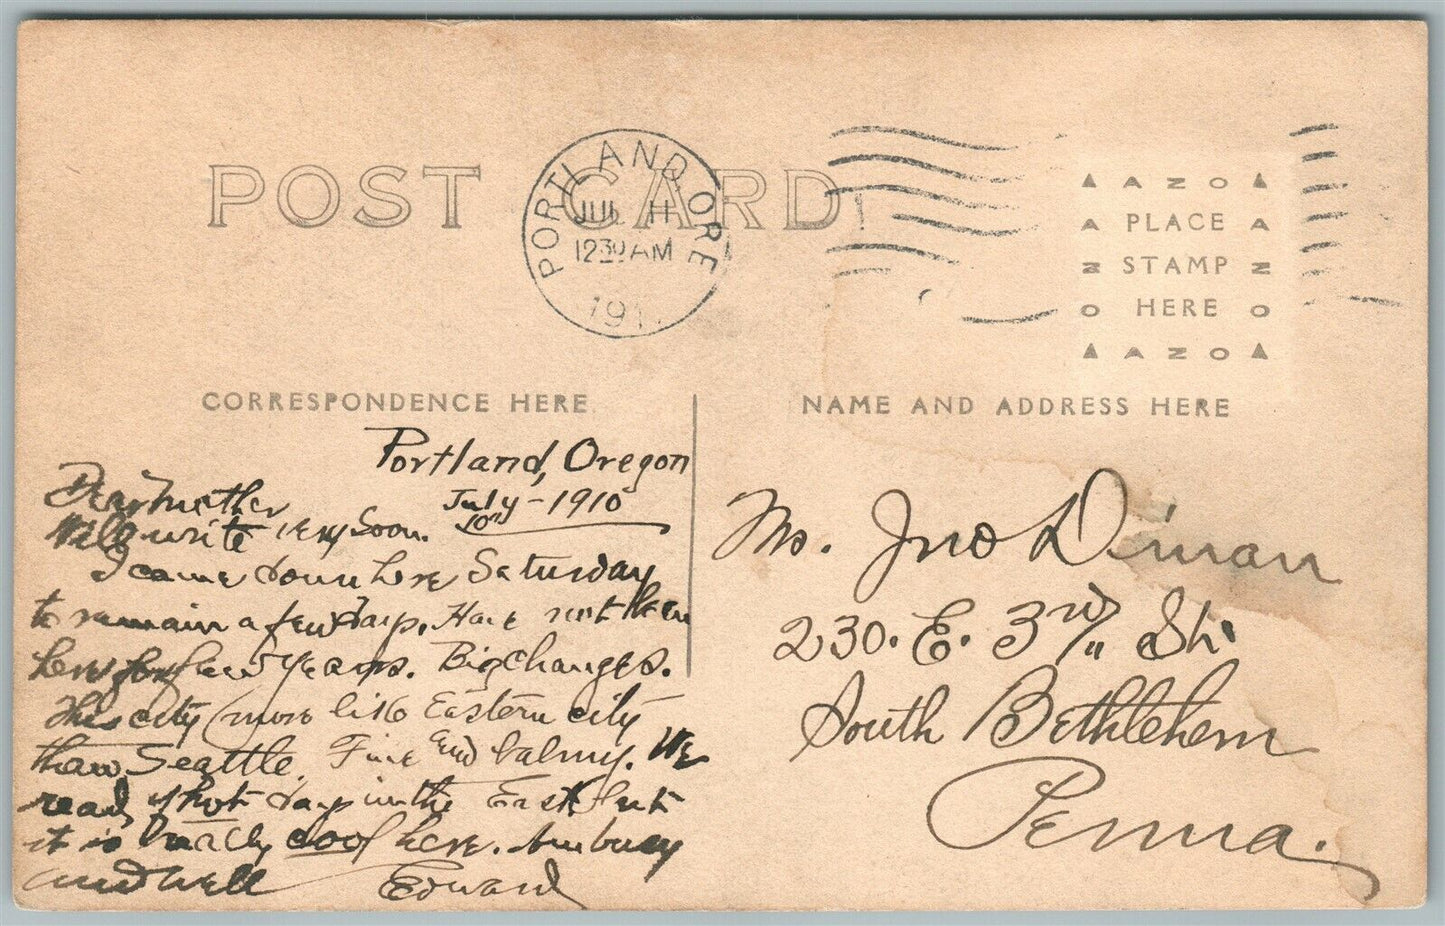 POST CARD
PORTLAND ORE
JUL 11
1230 AM
191
AZO
PLACE
STAMP
HERE
AZO
CORRESPONDENCE HERE
NAME AND ADDRESS HERE
Portland, Oregon
July - 1910
10th
Dear Mother
Will write very soon.
I came down here Saturday
to remain a few days. Have not been
here for 5 years. Big changes.
This city more like Eastern city
than Seattle. Fine and balmy. We
read of hot days in the East but
it is really cool here. Am busy
and well Edward
Jno Diman
230. E. 3rd St.
South Bethlehem
Penna.